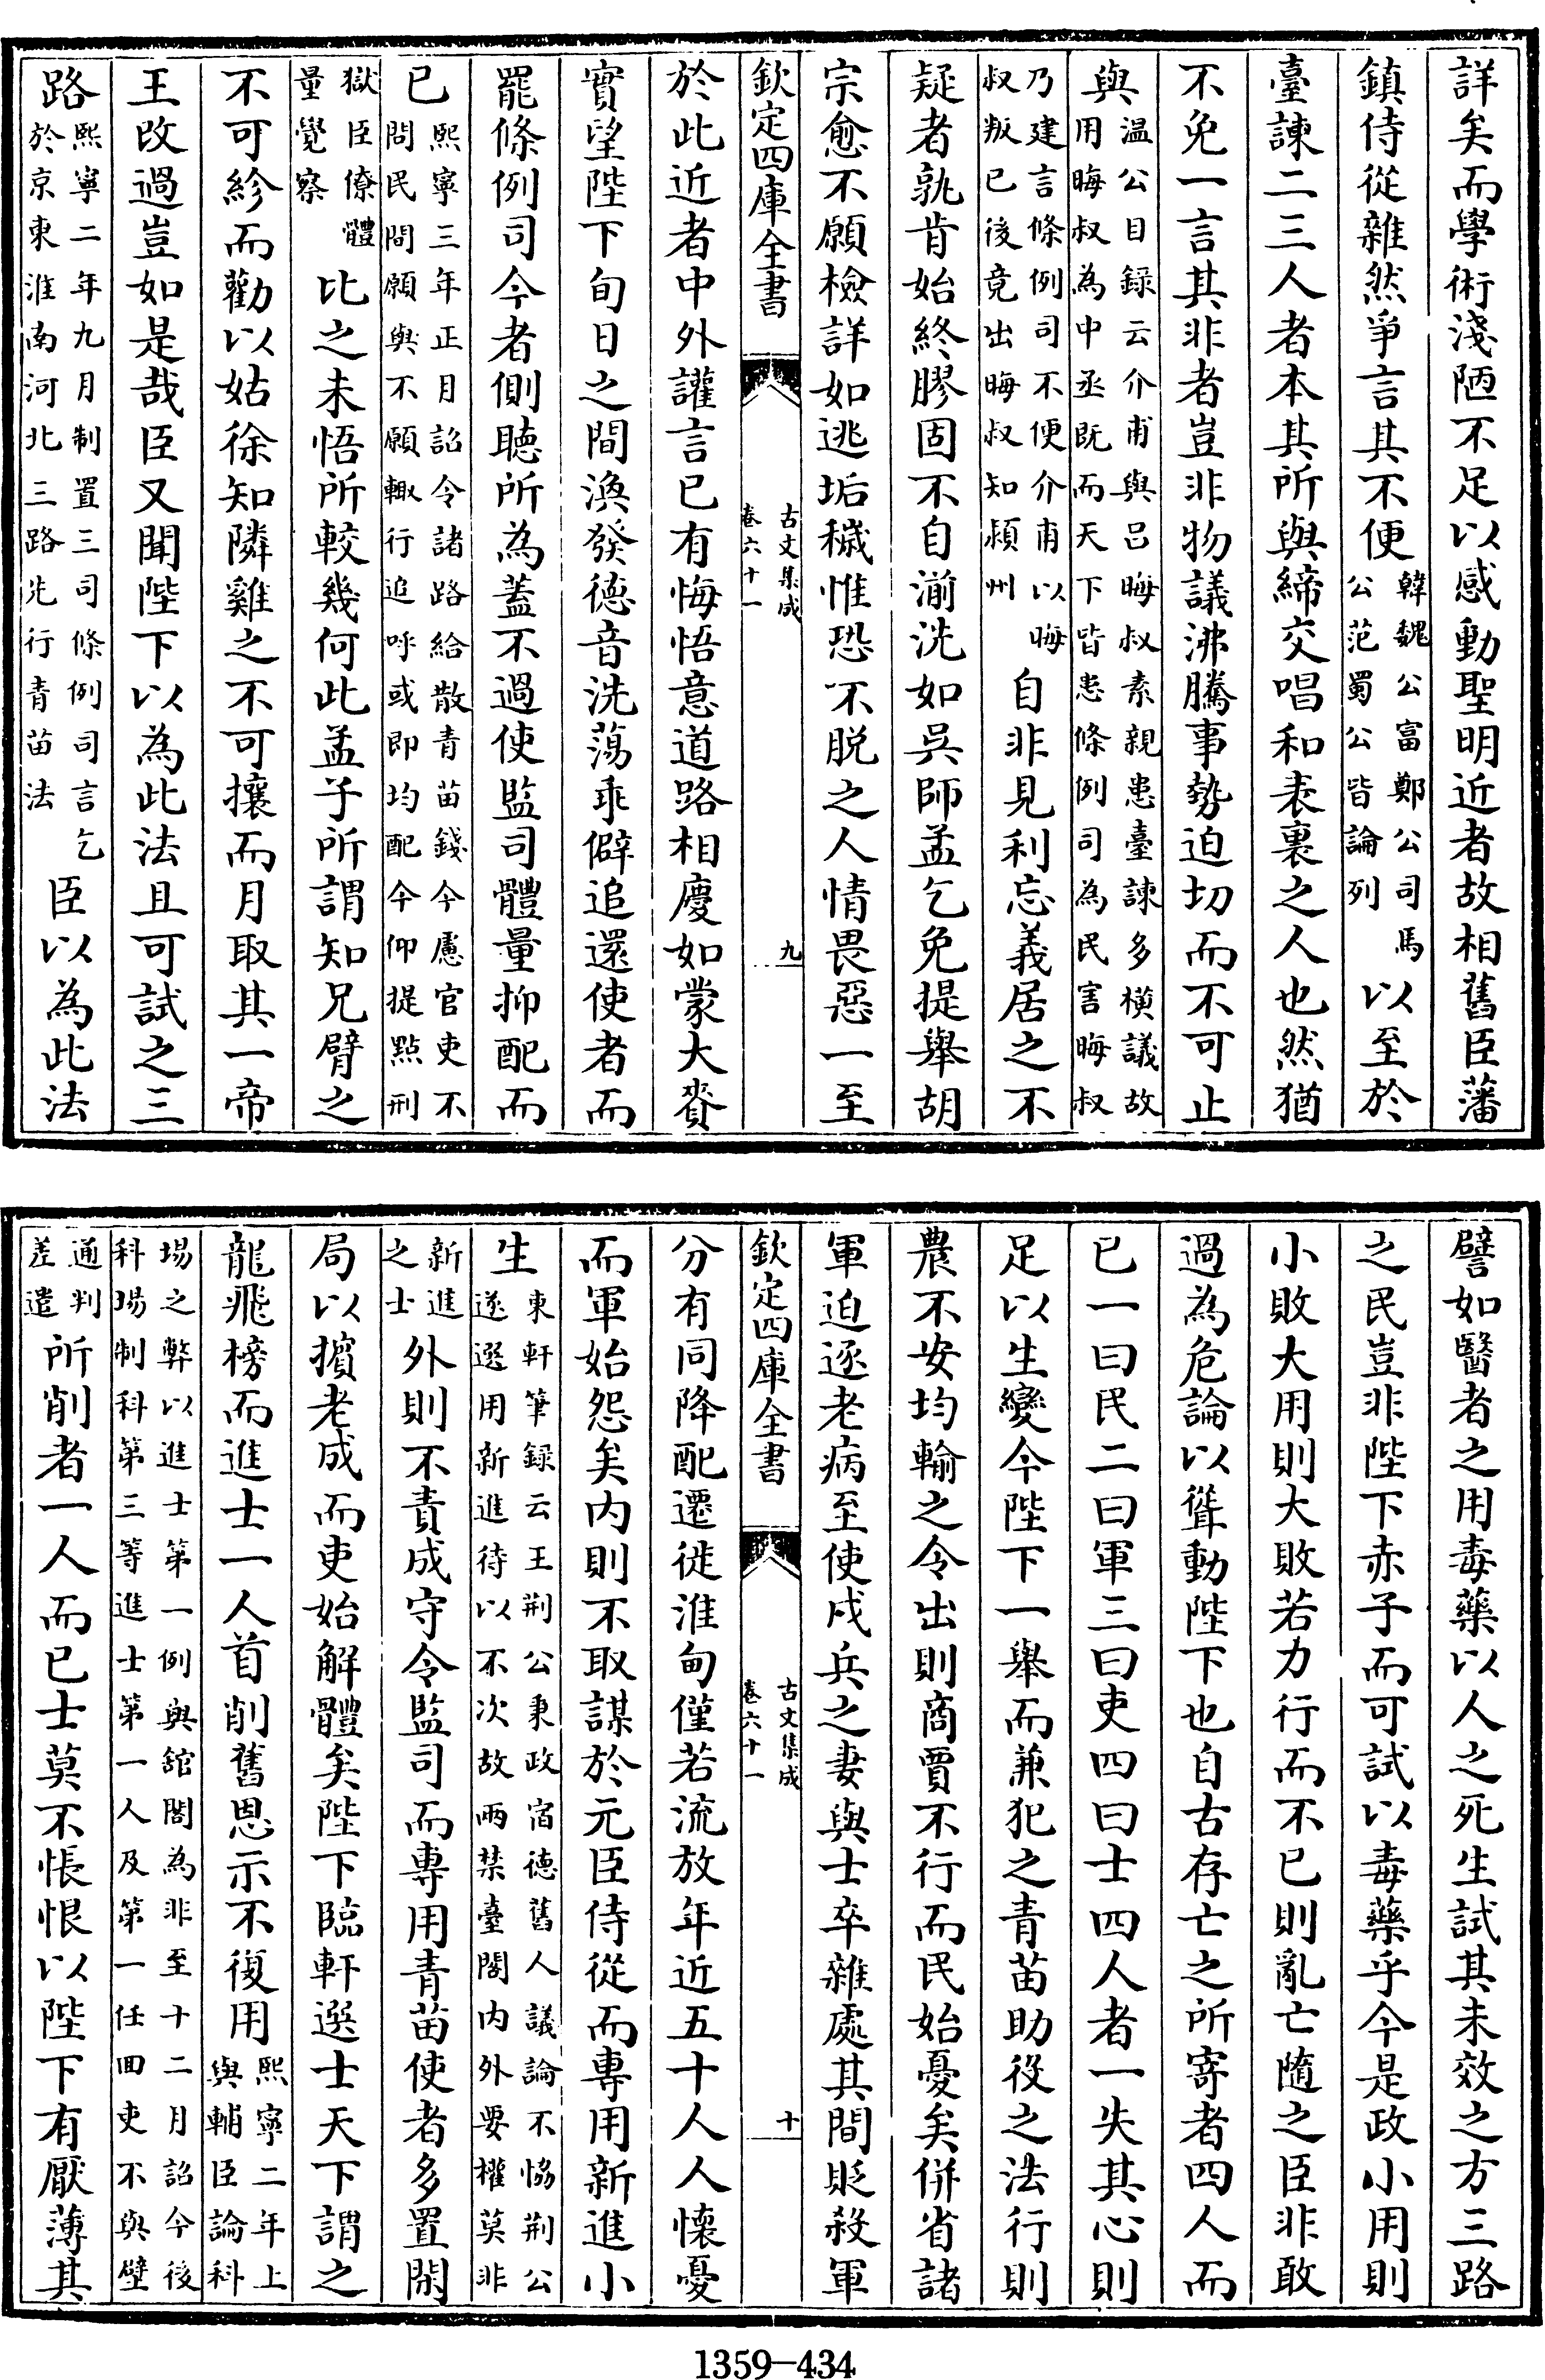 詳矣而學術淺陋不足以感動聖明近者故相舊臣藩
鎮侍從雜然爭言其不便韓魏公富鄭公司馬公范蜀公皆論列以至於
臺諫二三人者本其所與締交唱和表裏之人也然猶
不免一言其非者豈非物議沸騰事勢迫切而不可止
與温公目録云介甫與吕晦叔素親患臺諫多横議故用晦叔為中丞既而天下皆患條例司為民害晦叔
乃建言條例司不便介甫以晦叔叛已後竟出晦叔知潁州自非見利忘義居之不
疑者孰肯始終膠固不自湔洗如吳師孟乞免提舉胡
宗愈不願檢詳如逃垢穢惟恐不脱之人情畏惡一至
欽定四庫全書
古文集成
卷六十一
九
於此近者中外讙言已有悔悟意道路相慶如蒙大賚
實望陛下旬日之間渙發德音洗蕩乖僻追還使者而
罷條例司今者側聽所為蓋不過使監司體量抑配而
已熙寧三年正月詔令諸路給散青苗錢今慮官吏不問民間願與不願輙行追呼或即均配今仰提點刑
獄臣僚體量覺察比之未悟所較幾何此孟子所謂知兄臂之
不可紾而勸以姑徐知隣雞之不可攘而月取其一帝
王改過豈如是哉臣又聞陛下以為此法且可試之三
路熙寧二年九月制置三司條例司言乞於京東淮南河北三路先行青苗法臣以為此法
譬如醫者之用毒藥以人之死生試其未效之方三路
之民豈非陛下赤子而可試以毒藥乎今是政小用則
小敗大用則大敗若力行而不已則亂亡隨之臣非敢
過為危論以聳動陛下也自古存亡之所寄者四人而
已一曰民二曰軍三曰吏四曰士四人者一失其心則
足以生變今陛下一舉而兼犯之青苗助役之法行則
農不安均輸之令出則商賈不行而民始憂矣併省諸
軍迫逐老病至使戍兵之妻與士卒雜處其間貶殺軍
欽定四庫全書
古文集成
卷六十一
十
分有同降配遷徙淮甸僅若流放年近五十人人懷憂
而軍始怨矣内則不取謀於元臣侍從而專用新進小
生東軒筆録云王荆公秉政宿德舊人議論不恊荆公遂選用新進待以不次故兩禁臺閣内外要權莫非
新進之士外則不責成守令監司而專用青苗使者多置閑
局以擯老成而吏始解體矣陛下臨軒選士天下謂之
龍飛榜而進士一人首削舊恩示不復用熙寧二年上與輔臣論科
場之弊以進士第一例與舘閣為非至十二月詔今後科塲制科第三等進士第一人及第一任回吏不與壁
通判差遣所削者一人而已士莫不悵恨以陛下有厭薄其
1359-434